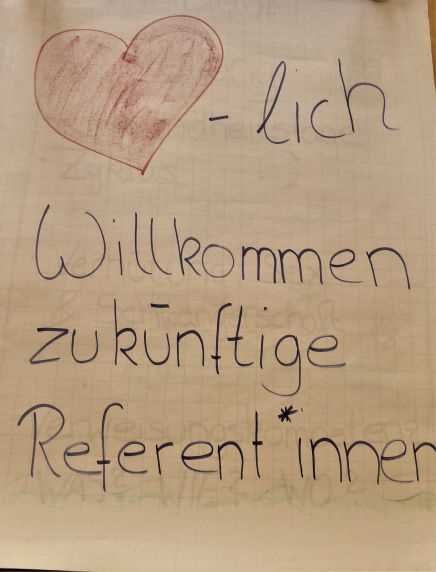 -lich
Willkommen
zukünftige
Referent*innen